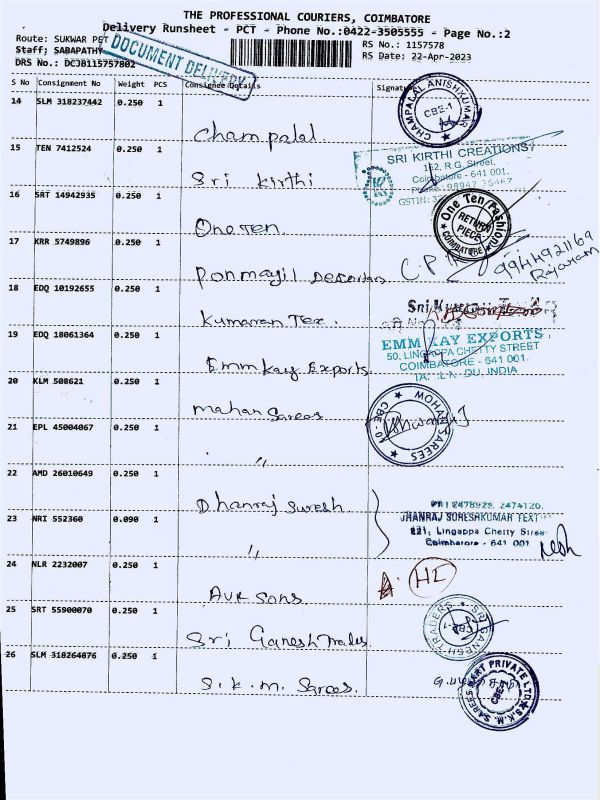 THE PROFESSIONAL COURIERS, COIMBATORE
Delivery Runsheet - PCT - Phone No.:0422-3505555 - Page No.:2
Route: SUKWAR PET
RS No.: 1157578
Staff; SABAPATHY
RS Date: 22-Apr-2023
DRS No.: DCJB115757802
DOCUMENT DELIVERY
S No Consignment No Weight PCS Consignee Details Signature
14 SLM 318237442 0.250 1
Champalal
CHAMPALAL ANISHKUMAR
CBE-1
15 TEN 7412524 0.250 1
Sri Kirthi
SRI KIRTHI CREATIONS
162, R.G. Street,
Coimbatore - 641 001.
GSTIN:
16 SRT 14942935 0.250 1
One Ten
One Ten Fashion
RETURN
PIECE
COIMBATORE
17 KRR 5749896 0.250 1
Ponmayil Decorators
C.P
9944921169
Rajaram
18 EDQ 10192655 0.250 1
Kumaran Tex.
Sri
19 EDQ 18061364 0.250 1
Emm Kay Exports
EMM KAY EXPORTS
50, LINGAPPA CHETTY STREET
COIMBATORE - 641 001.
INDIA
20 KLM 508621 0.250 1
Mahan Sarees
SAREES
CBE-01
21 EPL 45004067 0.250 1
"
22 AMD 26010649 0.250 1
Dhanraj Suresh
2478928, 2474120.
JHANRAJ SURESHKUMAR TEXT
221, Lingappa Chetty Stree
Coimbatore - 641 001
23 NRI 552360 0.090 1
"
24 NLR 2232007 0.250 1
AVR Sons
25 SRT 55900070 0.250 1
Sri Ganesh Traders
SRI GANESH TRADERS
26 SLM 318264076 0.250 1
S.K.M. Sarees.
S.K.M. SAREES MART PRIVATE LTD
CBE-1